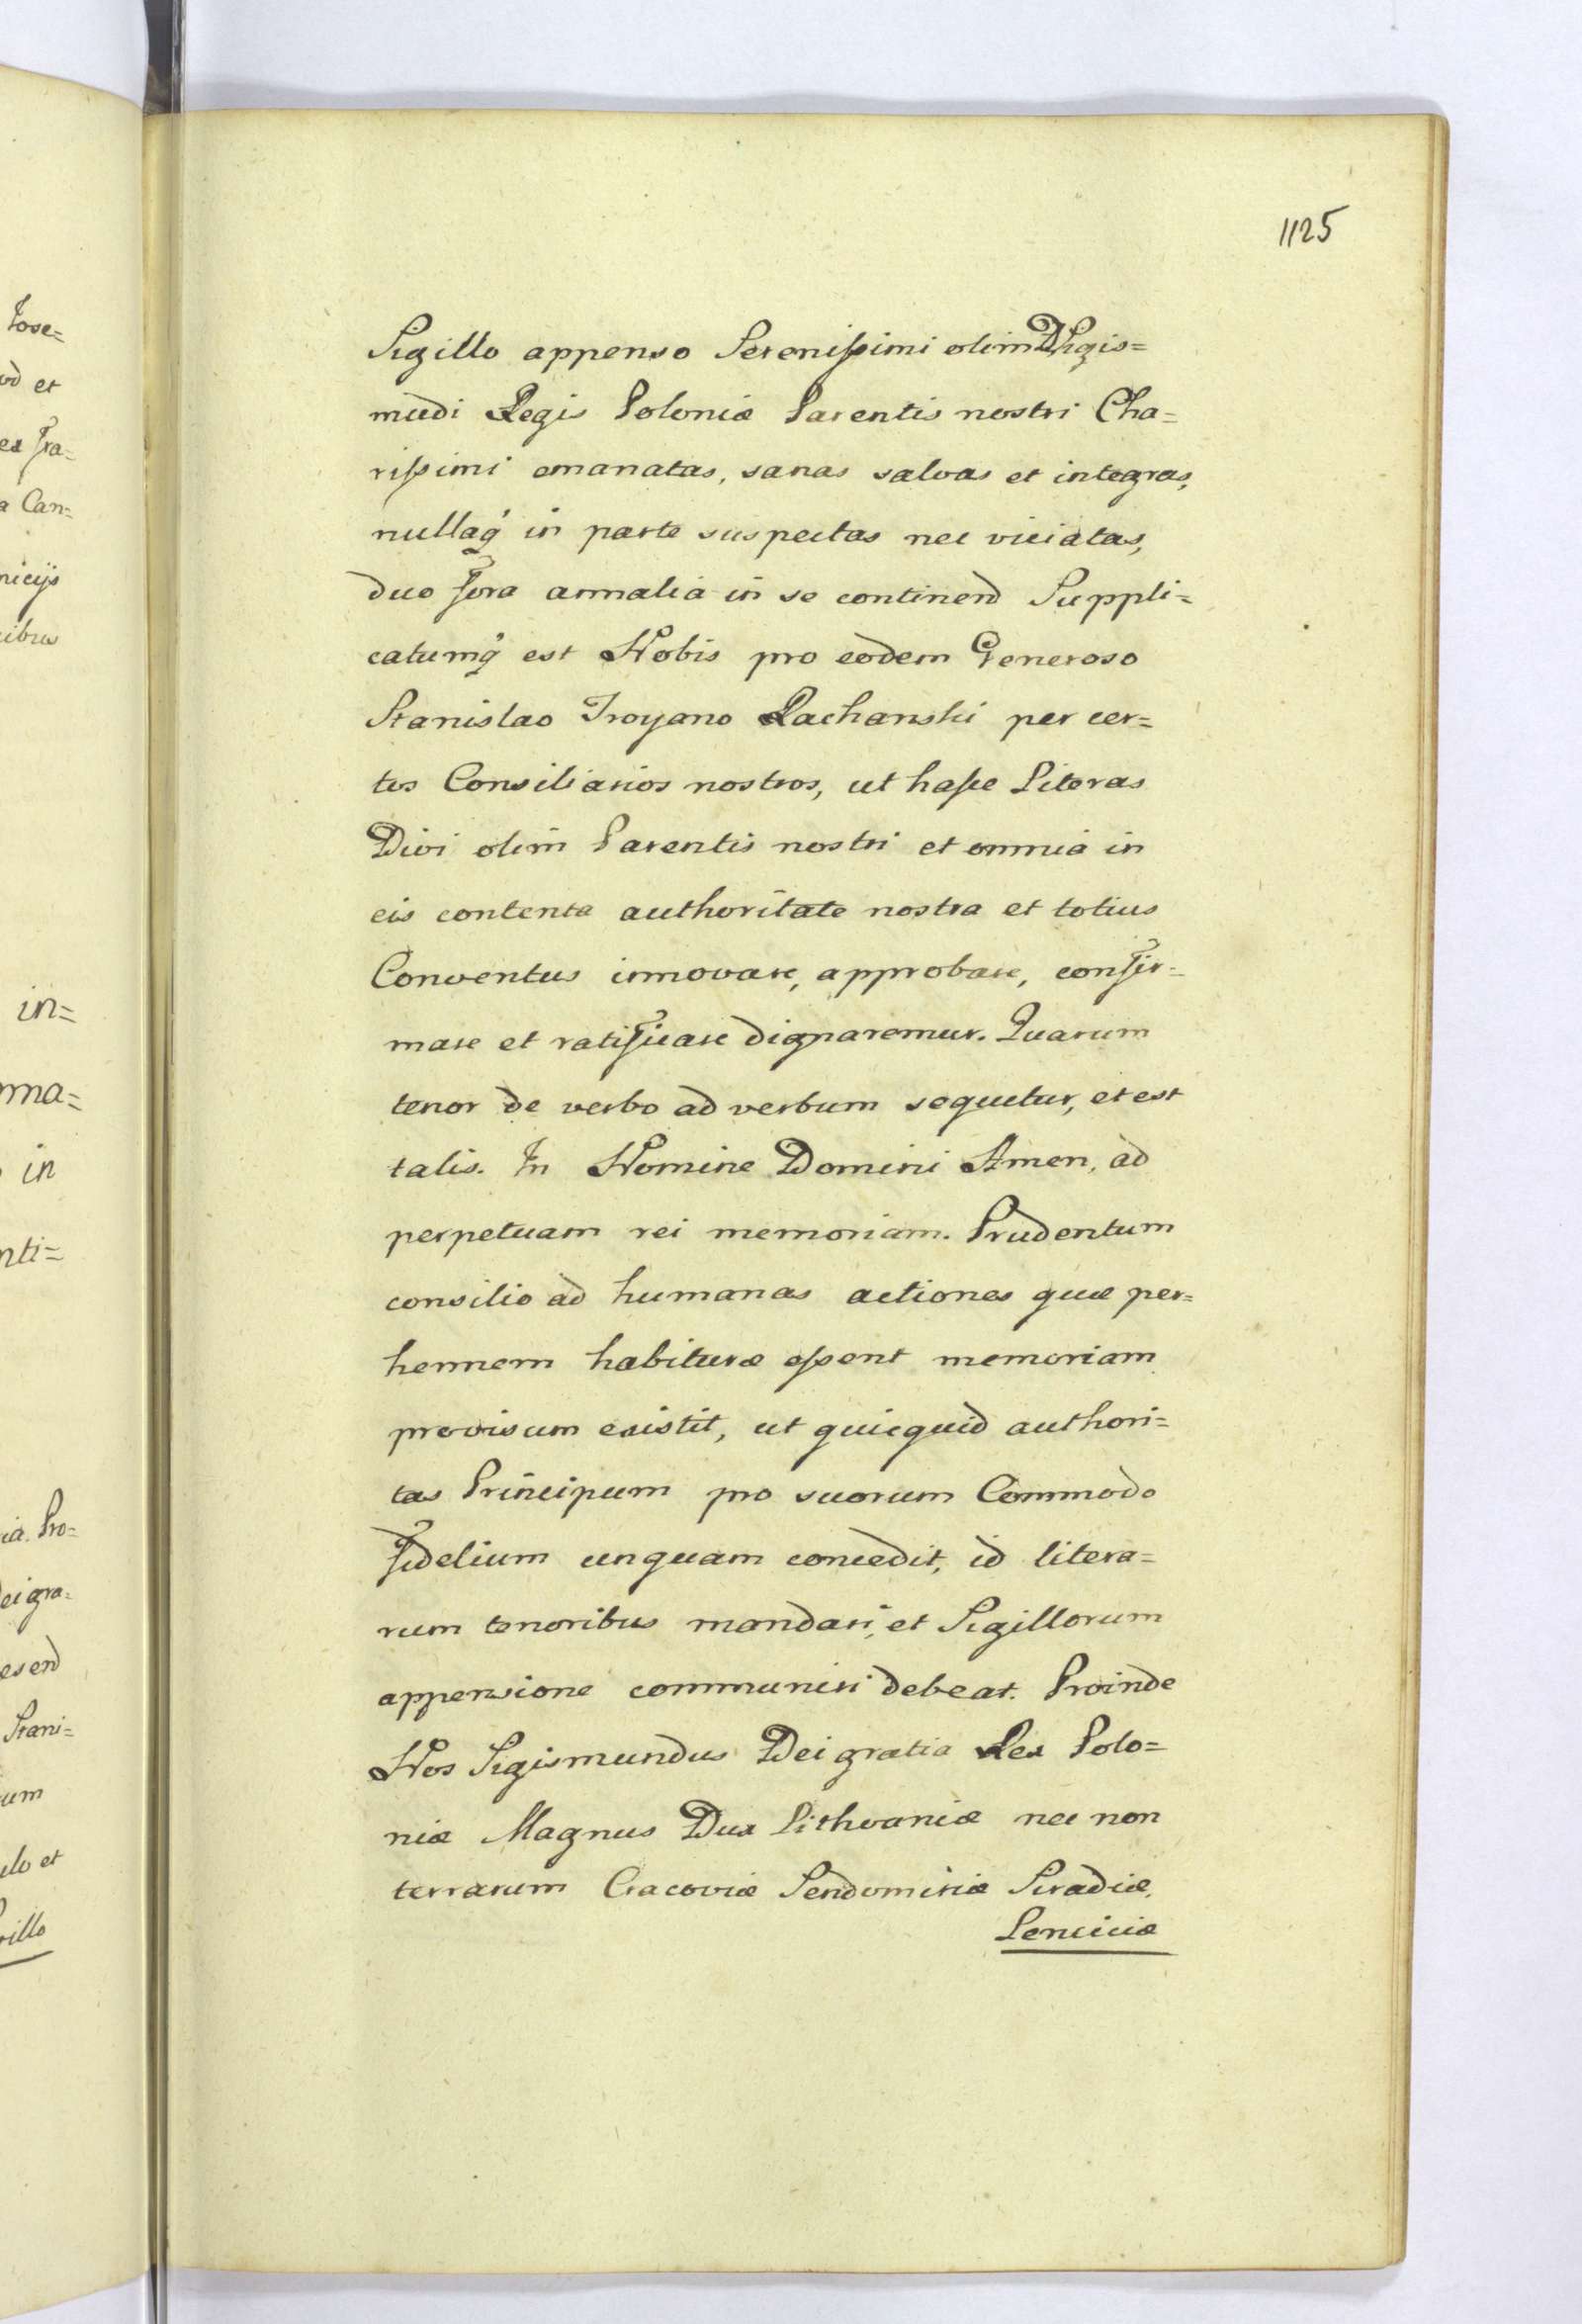 1125
Sigillo appenso Serenissimi olim D Sigis=
mudi Regis Poloniæ Parentis nostri Cha=
rissimi emanatas, sanas salvas et integras,
nullaq́ in parte suspectas nec viciatas,
duo fora annalia in se continend Suppli=
catumq́ est Nobis pro eodem Generoso
Stanislao Troyano Rachanski per cer=
tos Consiliarios nostros, ut hasce Literas
Divi olim Parentis nostri et omnia in
eis contenta authoritate nostra et totius
Conventus innovare, approbare, confir=
mare et ratificare dignaremur. Quarum
tenor de verbo ad verbum sequetur, et est
talis. In Nomine Domini Amen, ad
perpetuam rei memoriam. Prudentum
consilio ad humanas actiones quæ per=
hennem habituræ essent memoriam
provisum existit, ut quicquid authori=
tas Principum pro suorum Commodo
fidelium unquam concedit, id litera=
rum tenoribus mandari, et Sigillorum
appensione communiri debeat. Proinde
Nos Sigismundus Dei gratia Rex Polo=
niæ Magnus Dux Lithvaniæ nec non
terrarum Cracoviæ Sendomiriæ Siradiæ,
Lenciciæ
Jose=
od et
ex fra=
a Can=
nicijs
ibus
in=
ma=
in
nti=
ia. Pro=
ei gra=
esend
Stani=
um
ilo et
rillo